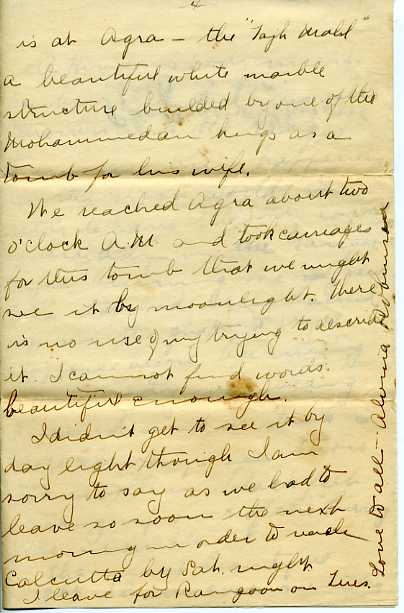 4
is at Agra – the "Tajh Mahl"
a beautiful white marble
structure builded by one of the
Mohammedan kings as a
tomb for his wife.
We reached Agra about two
o'clock A.M. and took carriages
for this tomb that we might
see it by moonlight. There
is no use of my trying to describe
it. I cannot find words
beautiful enough.
I didn't get to see it by
day light though I am
sorry to say as we had to
leave so soon the next
morning in order to reach
Calcutta by Sat. night
I leave for Rangoon on Tues.
Love to all – Alvina Robinson